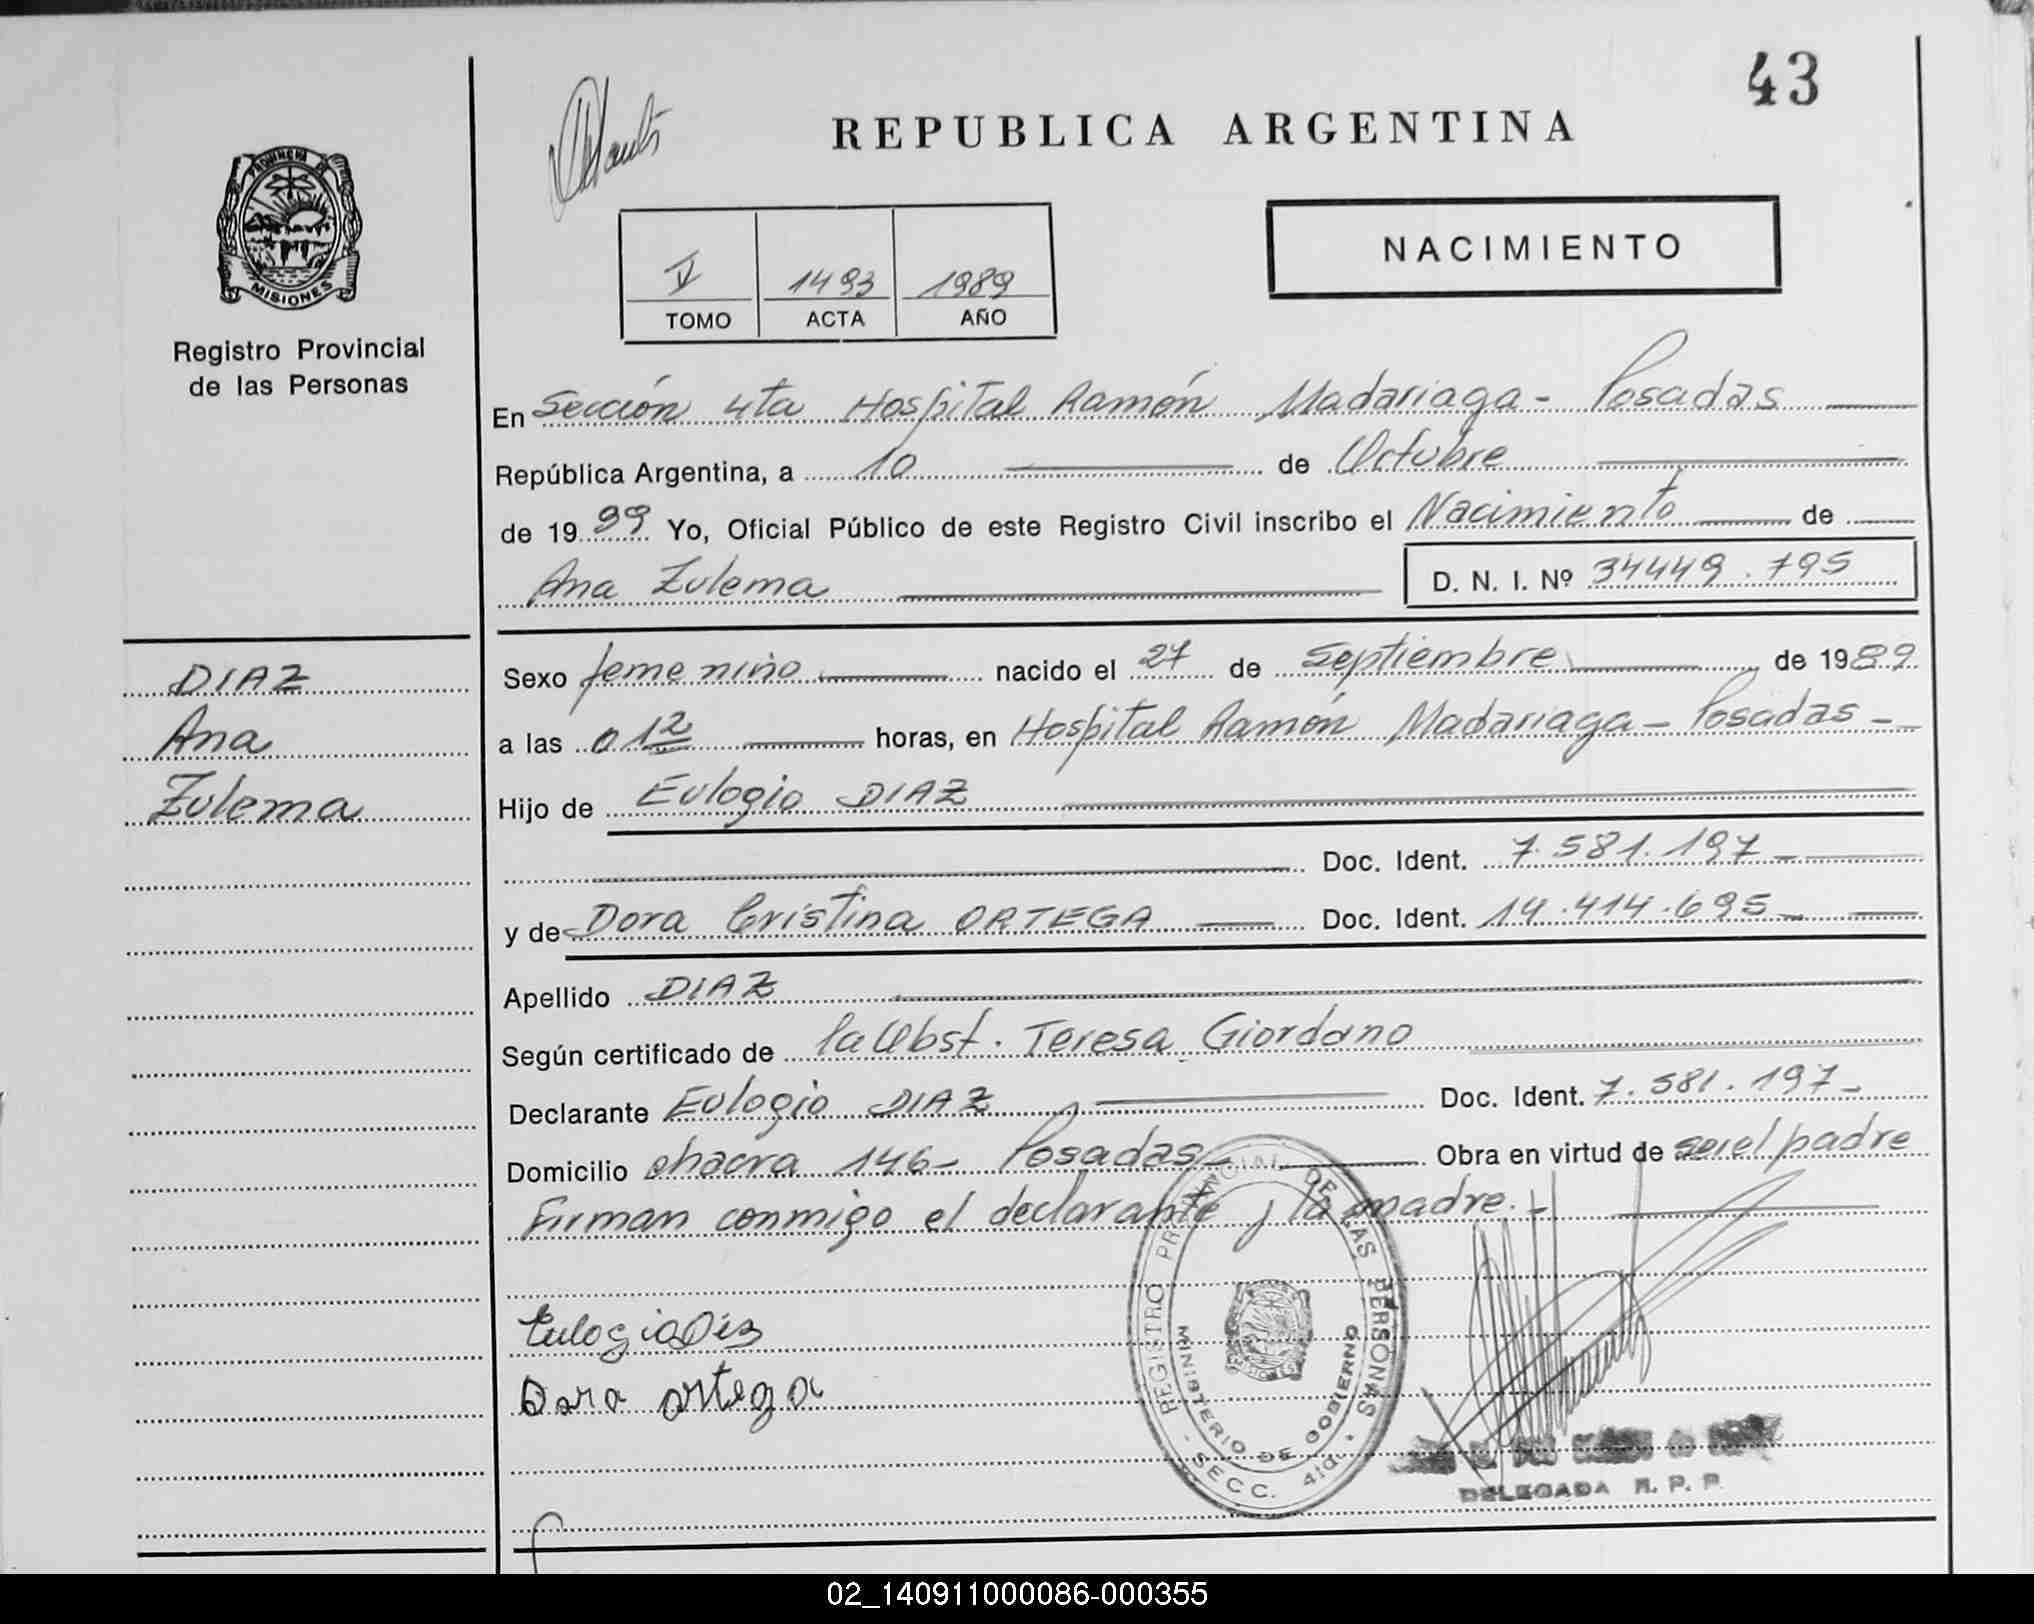 43
REPUBLICA ARGENTINA
PROVINCIA DE
MISIONES
NACIMIENTO
V 1493 1989
TOMO ACTA AÑO
Registro Provincial
de las Personas
En Sección 4ta Hospital Ramón Madariaga - Posadas
República Argentina, a 10 de Octubre
de 1999 Yo, Oficial Público de este Registro Civil inscribo el Nacimiento de
Ana Zulema D. N. I. Nº 34449.795
DIAZ
Ana
Zulema
Sexo femenino nacido el 27 de Septiembre de 1989
a las 012 horas, en Hospital Ramón Madariaga - Posadas -
Hijo de Eulogio DIAZ
Doc. Ident. 7.581.197 -
y de Dora Cristina ORTEGA Doc. Ident. 14.414.695 -
Apellido DIAZ
Según certificado de la Obst. Teresa Giordano
Declarante Eulogio DIAZ Doc. Ident. 7.581.197 -
Domicilio chacra 146 - Posadas - Obra en virtud de ser el padre
Firman conmigo el declarante y la madre. -
Eulogio Dis
Dora ortega
REGISTRO PROVINCIAL DE LAS PERSONAS
MINISTERIO DE GOBIERNO
- SECC. 4ta. -
DELEGADA R. P. P.
02_140911000086-000355